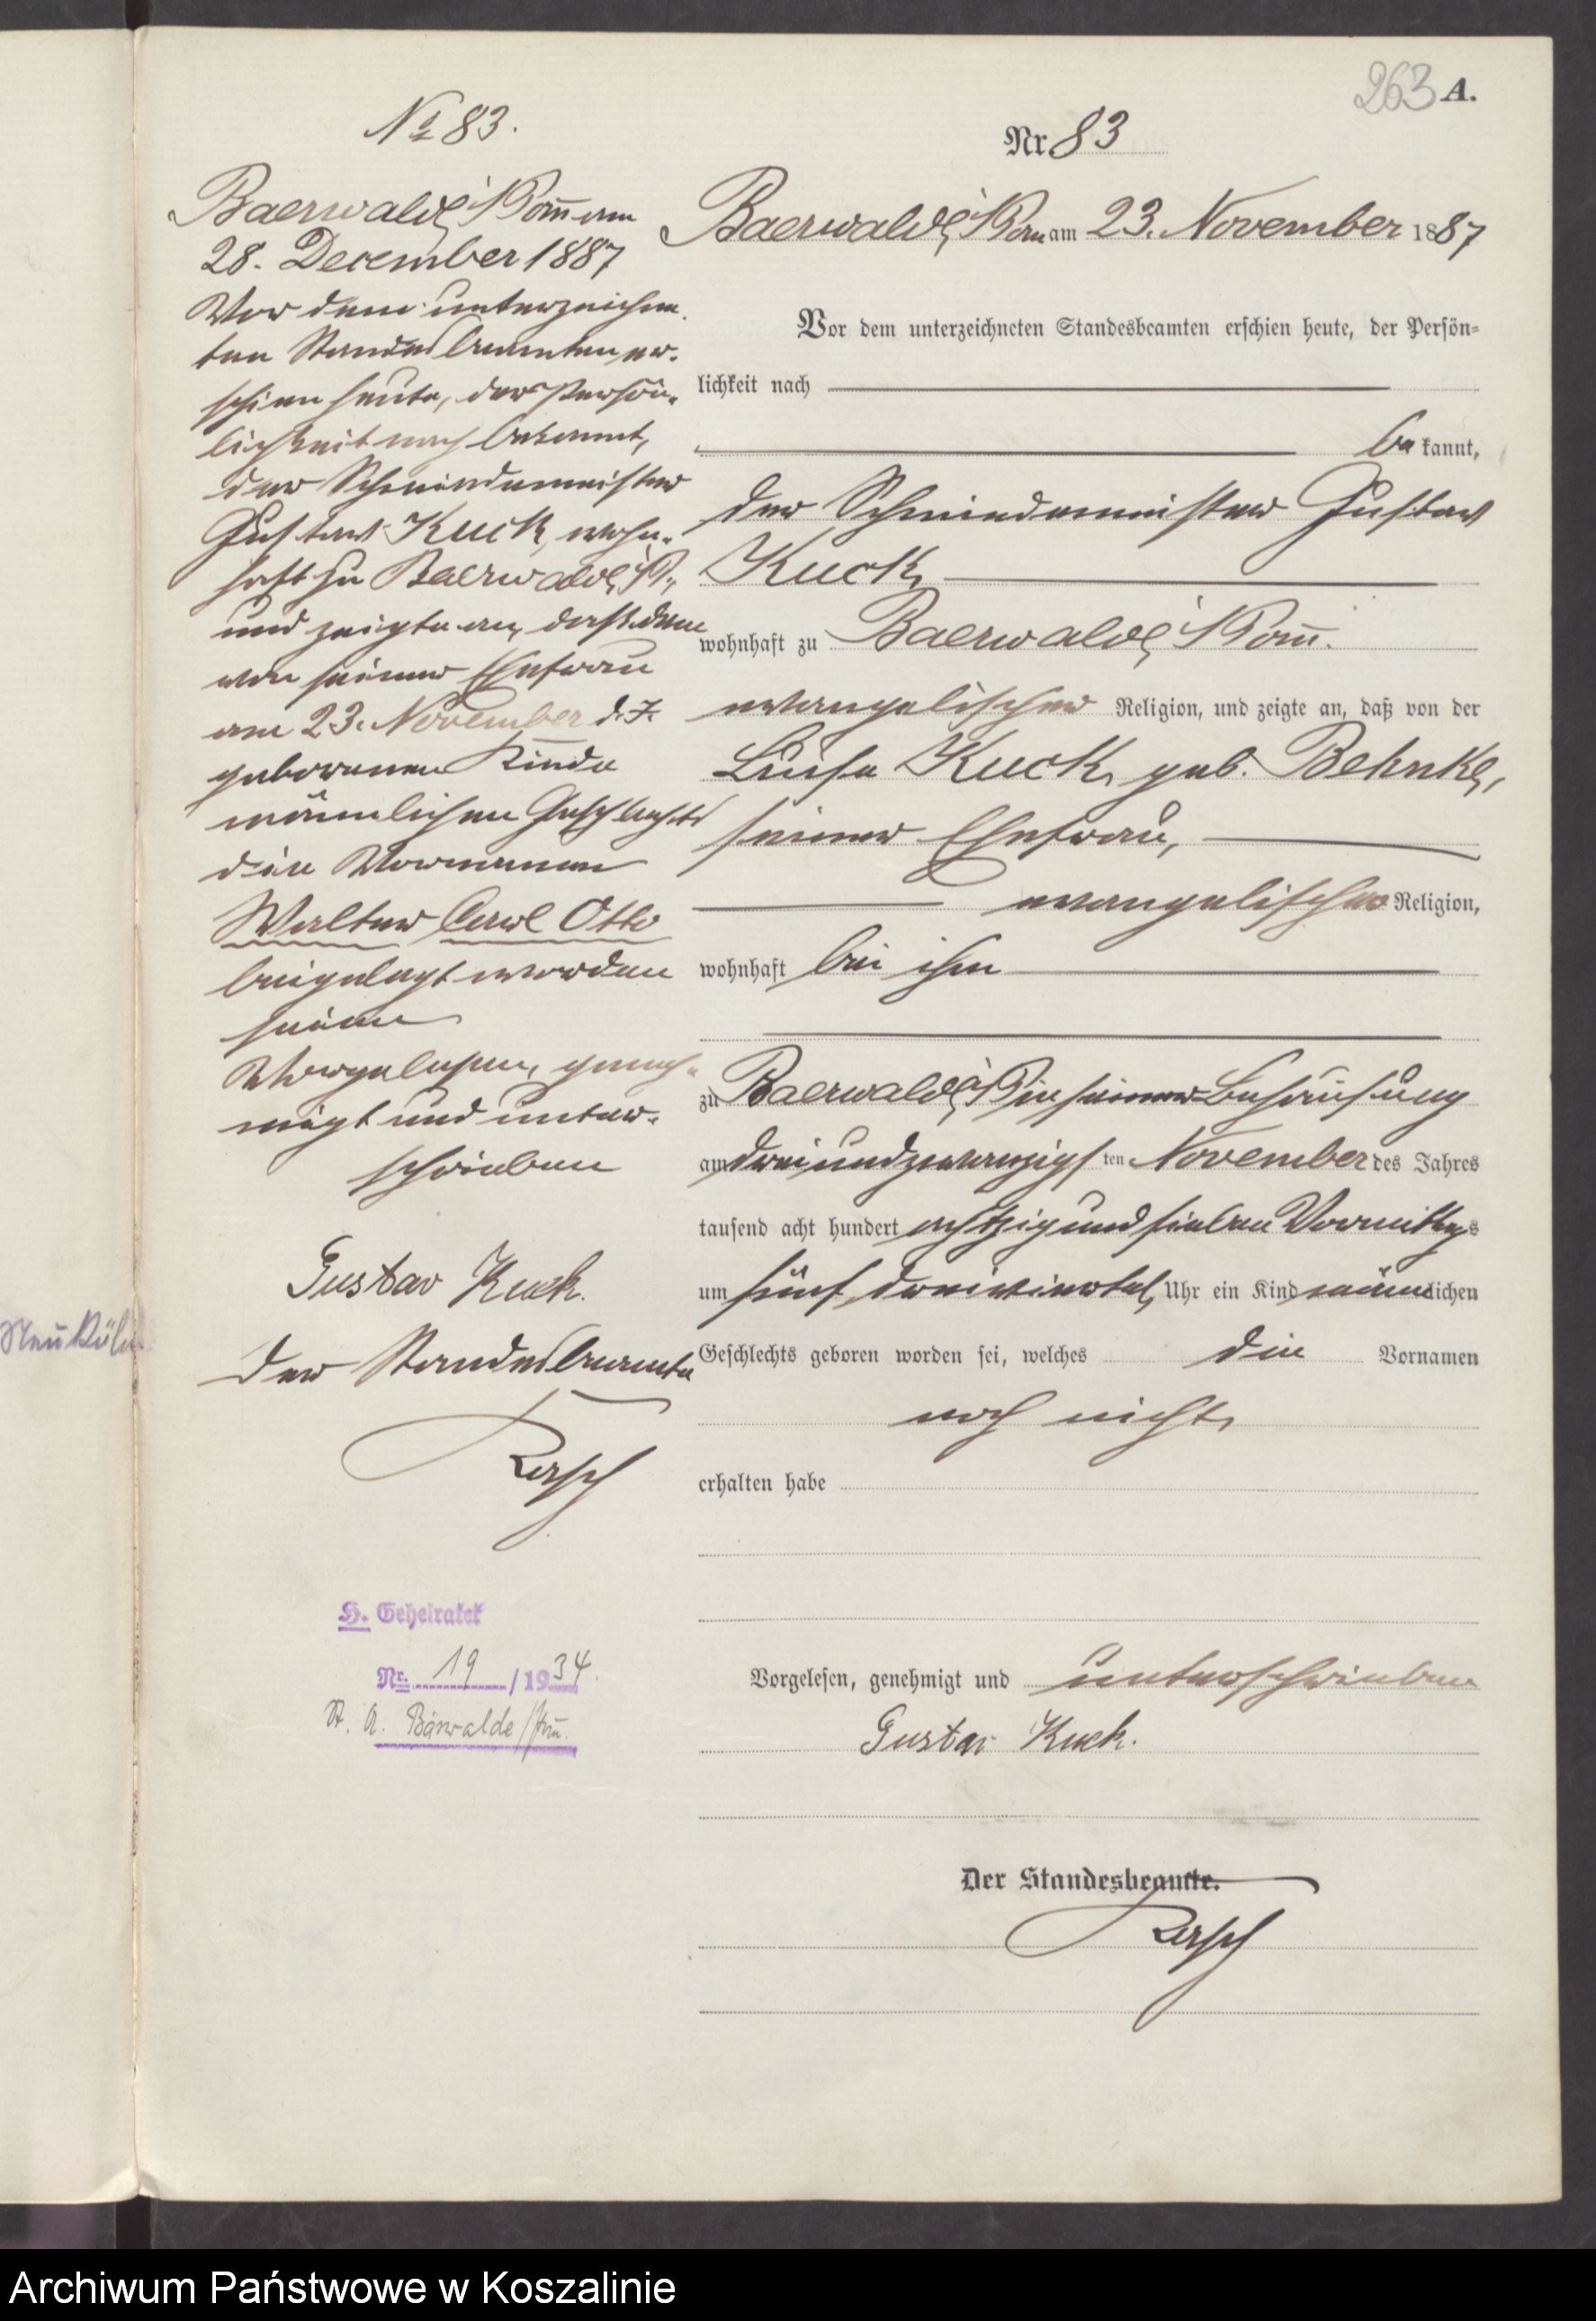 263 A.
№ 83.
Baerwalde i/Pom̄ am
28. December 1887
Vor dem unterzeichne-
ten Standesbeamten er-
schien heute, der Persön-
lichkeit nach bekannt,
der Schmiedemeister
Gustav Kuck, wohn-
haft zu Baerwalde i/P.,
und zeigte an, daß dem
von seiner Ehefrau
am 23. November d. J.
geborenen Kinde
männlichen Geschlechts
die Vornamen
Walter Carl Otto
beigelegt worden
seien
Vorgelesen, geneh-
migt und unter-
schrieben
Gustav Kuck.
Der Standesbeamte
H. Geheiratet
Nr. 19 / 1934.
St. A. Bärwalde/Pom̄.
Neukölln
Nr. 83
Baerwalde i/Pom am 23. November 1887
Vor dem unterzeichneten Standesbeamten erschien heute, der Persön-
lichkeit nach
be kannt,
der Schmiedemeister Gustav
Kuck,
wohnhaft zu Baerwalde i/Pom̄.
evangelischer Religion, und zeigte an, daß von der
Luise Kuck, geb. Behnke,
seiner Ehefrau,
evangelischer Religion,
wohnhaft bei ihm
zu Baerwalde i/P in seiner Behausung
am dreiundzwanzigsten November des Jahres
tausend acht hundert achtzig und sieben Vormittags
um fünf dreiviertel Uhr ein Kind männlichen
Geschlechts geboren worden sei, welches die Vornamen
noch nicht
erhalten habe
Vorgelesen, genehmigt und unterschrieben
Gustav Kuck.
Der Standesbeamte.
Archiwum Państwowe w Koszalinie